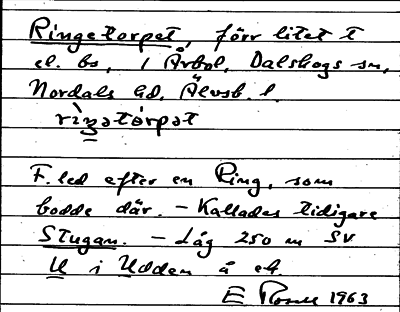 Ringetorpet, förr litet t
el. bs, i Årbol, Dalskogs sn,
Nordals hd, Älvsb. l.
rìŋətórpət
F. led efter en Ring, som
bodde där. - Kallades tidigare
Stugan. - Låg 250 m SV
U i Udden å ek.
E. 1963